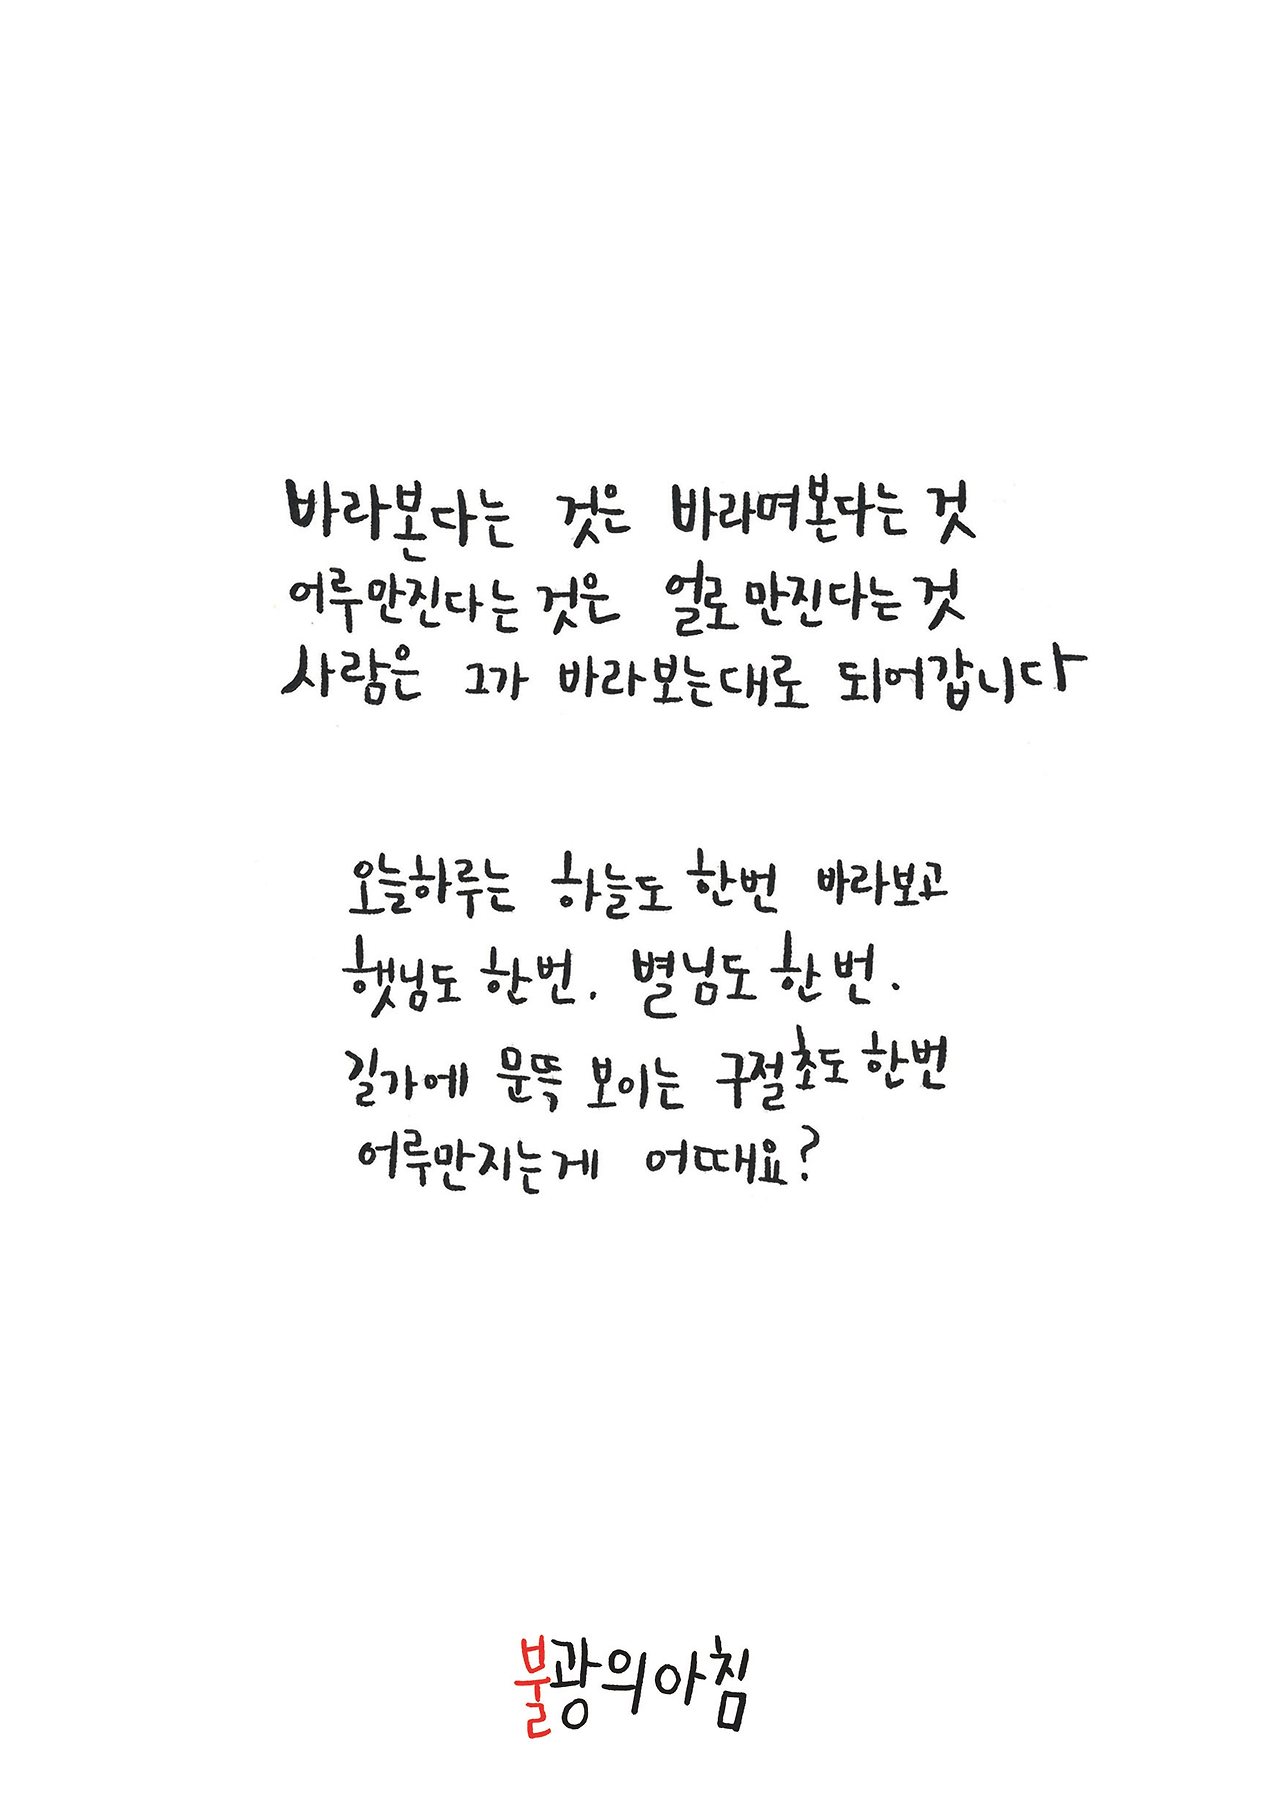 바라본다는 것은 바라며본다는 것
어루만진다는 것은 얼로만진다는 것
사람은 그가 바라보는대로 되어갑니다
오늘하루는 하늘도 한번 바라보고
햇님도 한번. 별님도 한번.
길가에 문뜩 보이는 구절초도 한번
어루만지는게 어때요?
불광의아침